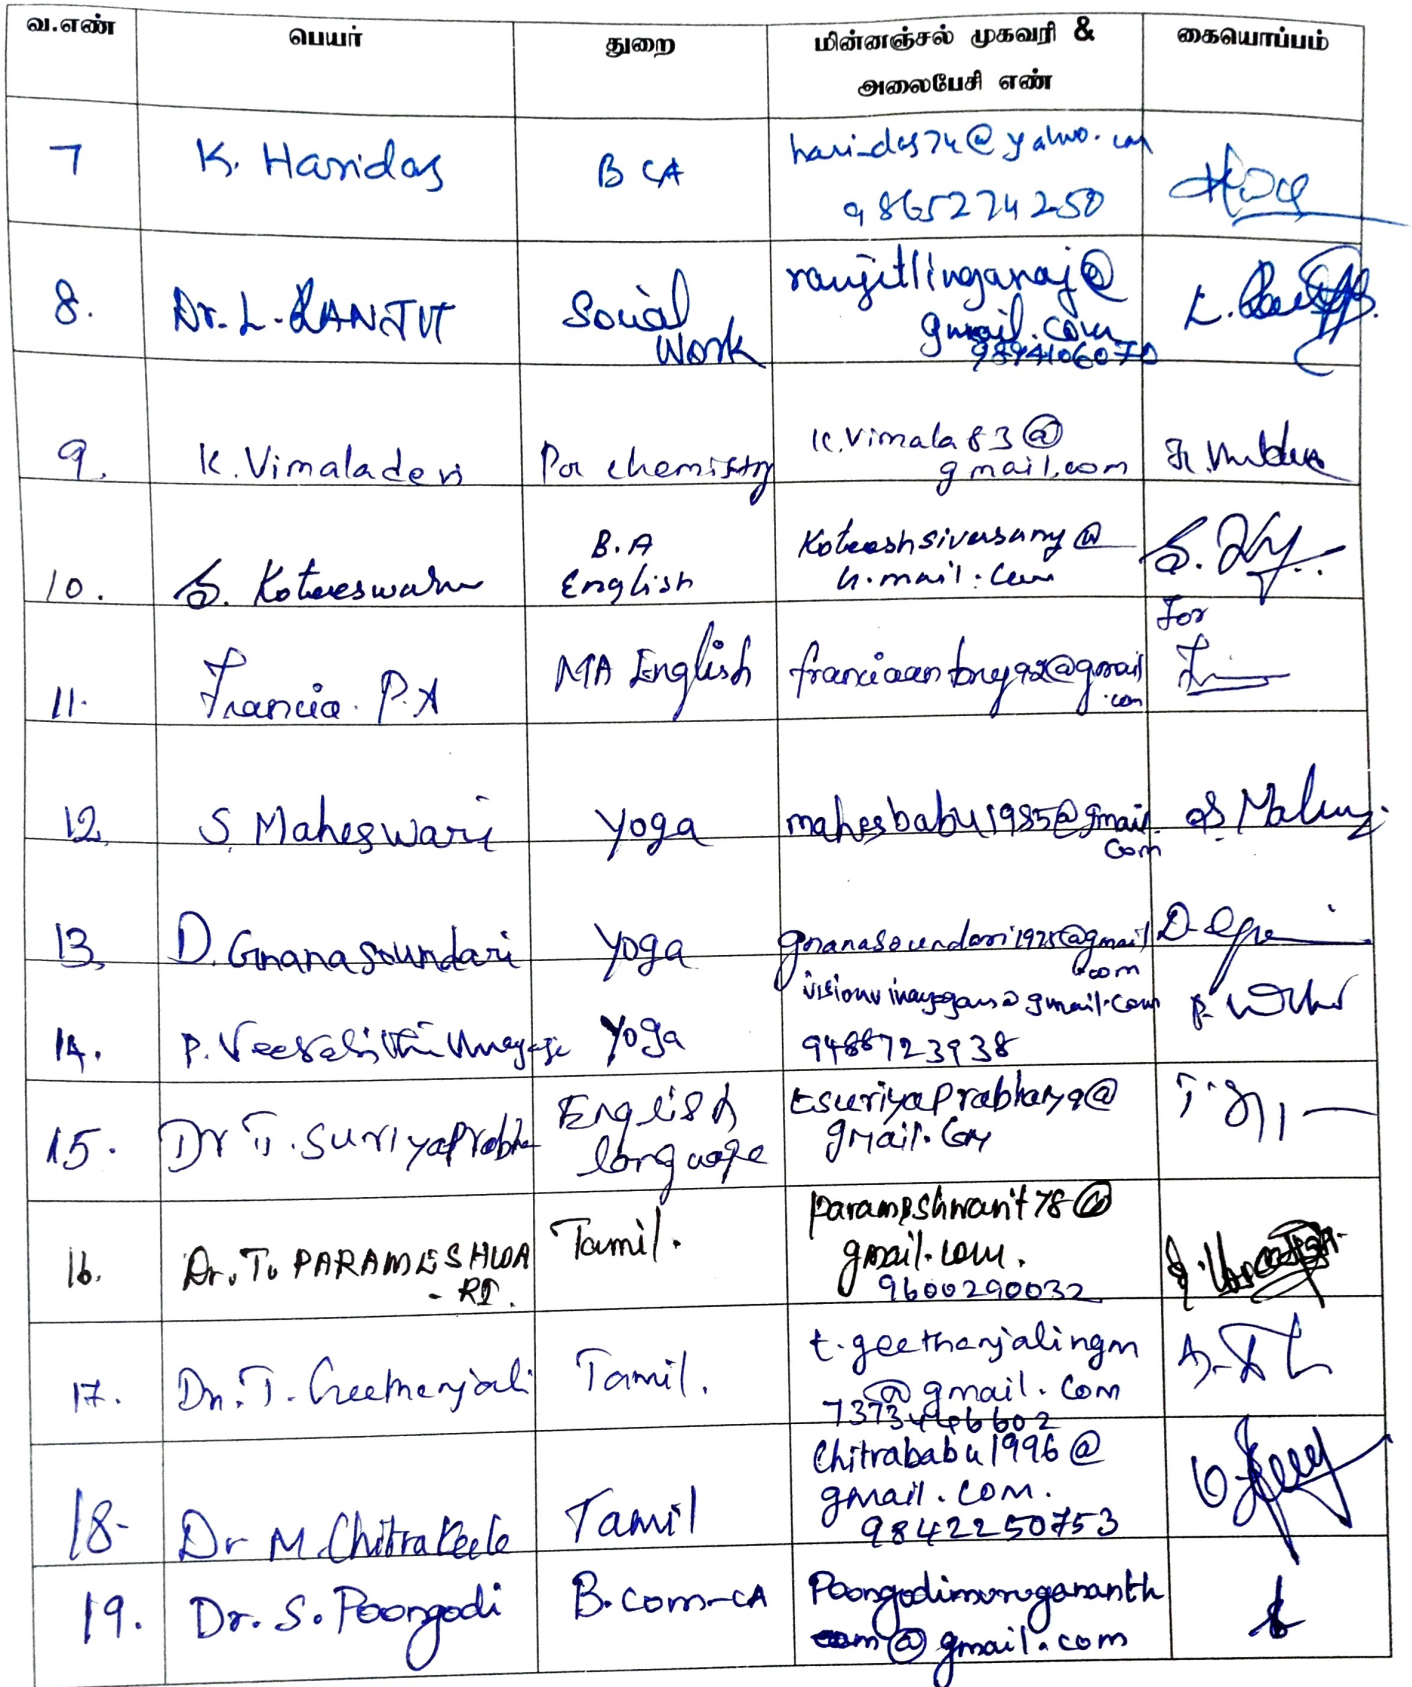 வ.எண் பெயர் துறை மின்னஞ்சல் முகவரி & அலைபேசி எண் கையொப்பம்
7 K. Haridas BCA haridas74@yahoo.com
9865274250
8. Dr. L. RANJIT Social Work ranjitlingaraj@
gmail.com
9894106070
9. K. Vimaladevi chemistry k.vimala83@
gmail.com
10. S. Koteeswaran B.A
English
11. Francia. P.A MA English franciaantony92@gmail
.com For
12. S. Maheswari Yoga mahesbabu1985@gmail.
com
13. D. Gnanasoundari Yoga gnanasoundari1975@gmail
.com
14. P. Yoga visionvinayagam@gmail.com
9488723938
15. Dr T. Suriyaprabha English
language tsuriyaprabha79@
gmail.com
16. Dr. T. PARAMESHWA
- RI. Tamil. parameshwarit78@
gmail.com.
9600290032
17. Dr. T. Geethanjali Tamil. t.geethanjalingm
@gmail.com
7373446602
18- Dr M. Chitrakala Tamil Chitrababu1996@
gmail.com.
9842250753
19. Dr. S. Poongodi B.com-CA Poongodimurugananth
@gmail.com